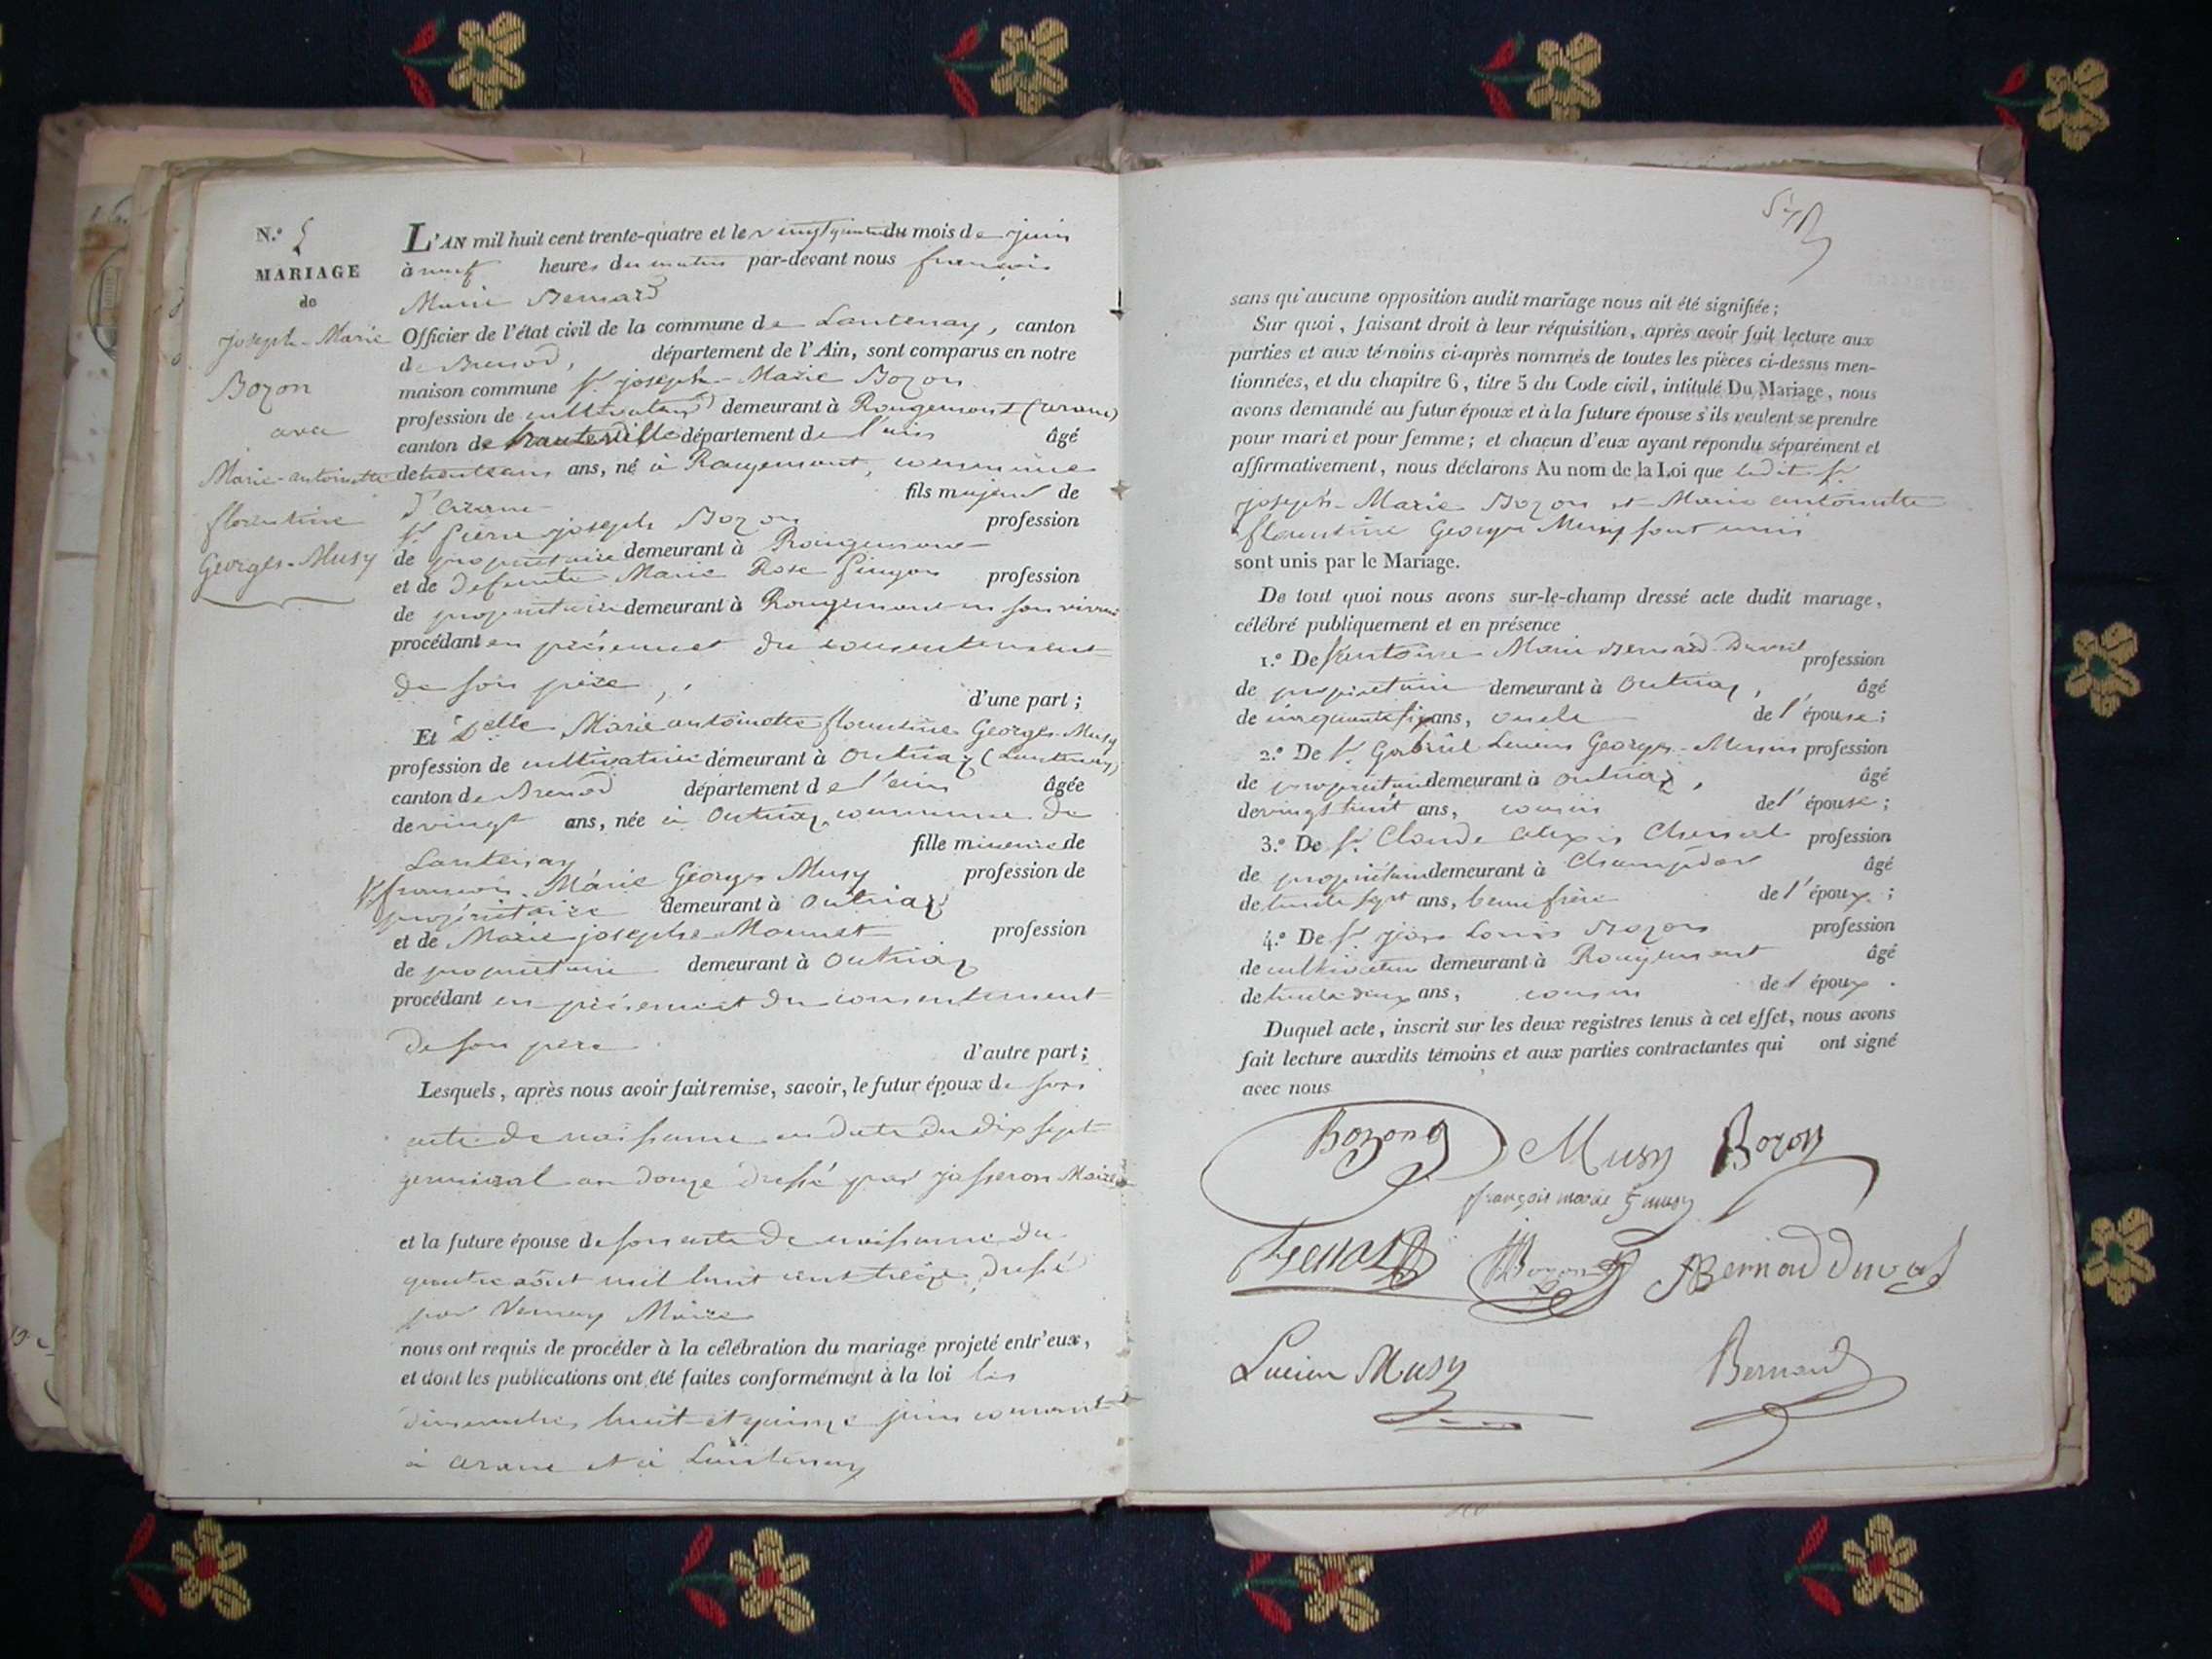 N.° 5
MARIAGE
de
Joseph-Marie
Bozon
avec
Marie-antoinette
florentine
Georges-Musy
L'AN mil huit cent trente-quatre et le du mois de juin
à neuf heures du matin par-devant nous françois
Marie Bernard
Officier de l'état civil de la commune de Lantenay, canton
de Brenod, département de l'Ain, sont comparus en notre
maison commune Sr. joseph-Marie Bozon
profession de cultivateur demeurant à Rougemont (arane)
canton de hauteville département de l'ain âgé
de trente ans, né à Rougemont, commune
d'Arane fils majeur de
Sr. Pierre joseph Bozon profession
de propriétaire demeurant à Rougemont
et de defunte Marie Rose profession
de propriétaire demeurant à Rougemont en son vivant
procédant en présence et du consentement
de son père, d'une part;
Et Delle Marie antoinette florentine Georges-Musy
profession de cultivatrice demeurant à Outriaz (Lantenay)
canton de Brenod département de l'ain âgée
de vingt ans, née à Outriaz, commune de
Lantenay fille mineure de
Sr. françois-Marie Georges Musy profession de
propriétaire demeurant à Outriaz
et de Marie josephe Monnet profession
de propriétaire demeurant à Outriaz
procédant en présence et du consentement
de son père d'autre part;
Lesquels, après nous avoir fait remise, savoir, le futur époux de son
acte de naissance en date du dix sept
germinal an douze dressé par jasseron Maire
et la future épouse de son acte de naissance du
quatre août mil huit cent treize, dressé
par Maire
nous ont requis de procéder à la célébration du mariage projeté entr'eux,
et dont les publications ont été faites conformément à la loi les
dimanches huit et quinze juin courant
à arane et à Lantenay
sans qu'aucune opposition audit mariage nous ait été signifiée;
Sur quoi, faisant droit à leur réquisition, après avoir fait lecture aux
parties et aux témoins ci-après nommés de toutes les pièces ci-dessus men-
tionnées, et du chapitre 6, titre 5 du Code civil, intitulé Du Mariage, nous
avons demandé au futur époux et à la future épouse s'ils veulent se prendre
pour mari et pour femme; et chacun d'eux ayant répondu séparément et
affirmativement, nous déclarons Au nom de la Loi que ledit Sr.
joseph-Marie Bozon et Marie antoinette
florentine Georges Musy sont unis
sont unis par le Mariage.
De tout quoi nous avons sur-le-champ dressé acte dudit mariage,
célébré publiquement et en présence
1.° De Sr antoine-Marie Bernard Duval profession
de propriétaire demeurant à Outriaz, âgé
de cinquante six ans, oncle de l'épouse;
2.° De Sr. Gabriel Lucien Georges-Musy profession
de propriétaire demeurant à Outriaz, âgé
de vingt huit ans, cousin de l'épouse;
3.° De Sr. Claude alexis Chenal profession
de propriétaire demeurant à Champdor âgé
de trente sept ans, beau frère de l'époux;
4.° De Sr. Louis Bozon profession
de cultivateur demeurant à Rougemont âgé
de trente deux ans, cousin de l'époux.
Duquel acte, inscrit sur les deux registres tenus à cet effet, nous avons
fait lecture auxdits témoins et aux parties contractantes qui ont signé
avec nous
Bozon Musy Bozon
françois marie G musy
Bozon Bernard Duval
Lucien Musy Bernard